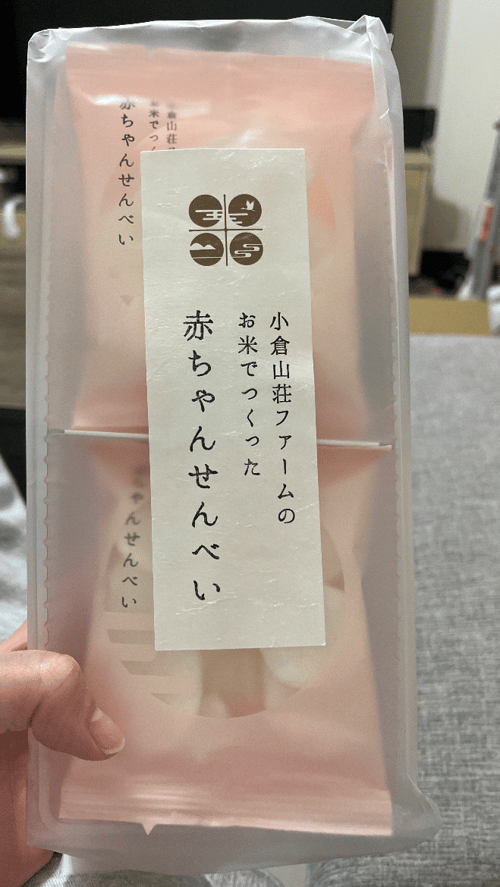 小倉山荘ファームの
お米でつくった
赤ちゃんせんべい
小倉山荘
お米でつく
赤ちゃんせんべい
ちゃんせんべい